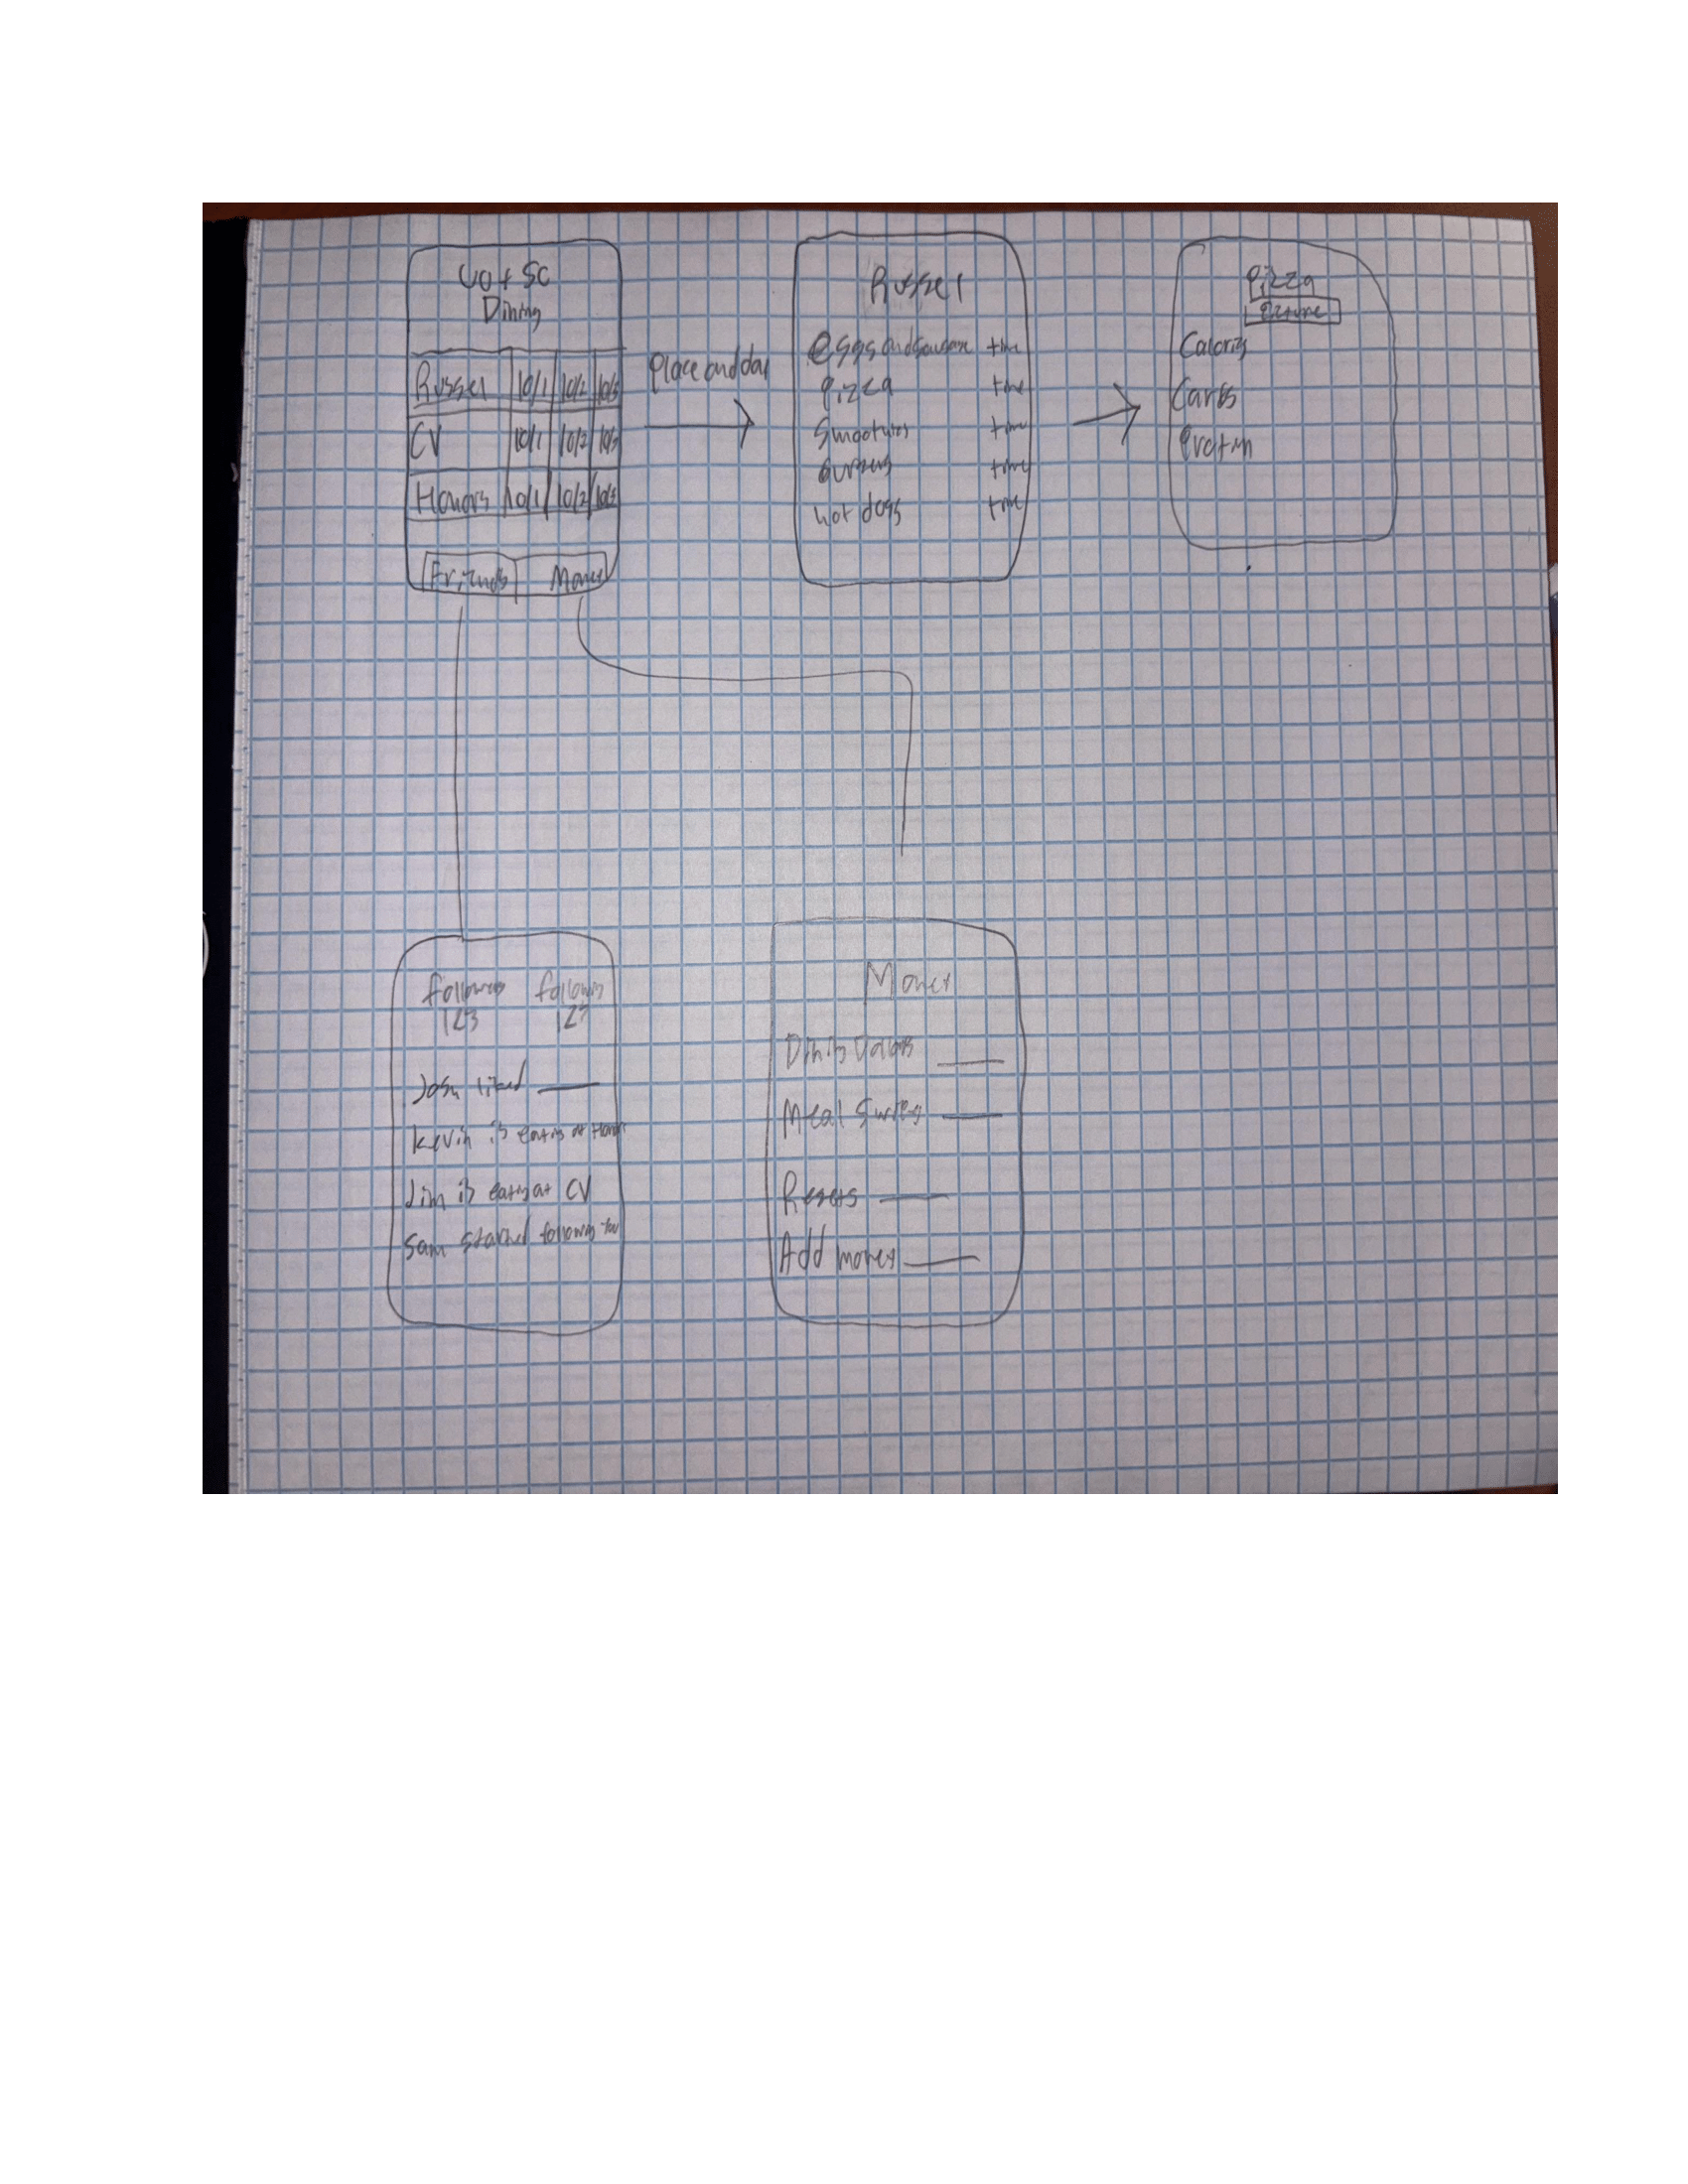 UofSC
Dining
Russel 10/1 10/2 10/3
CV 10/1 10/2 10/3
Honors 10/1 10/2 10/3
Friends Money
Place and day
Russel
eggs and sausage time
Pizza time
Smoothies time
Burgers time
hot dogs time
Pizza
Picture
Calories
Carbs
Protein
followers following
123 127
Josh liked
Kevin is eating at Honors
Jim is eating at CV
Sam started following you
Money
Dining Dollars
Meal Swipes
Resets
Add money